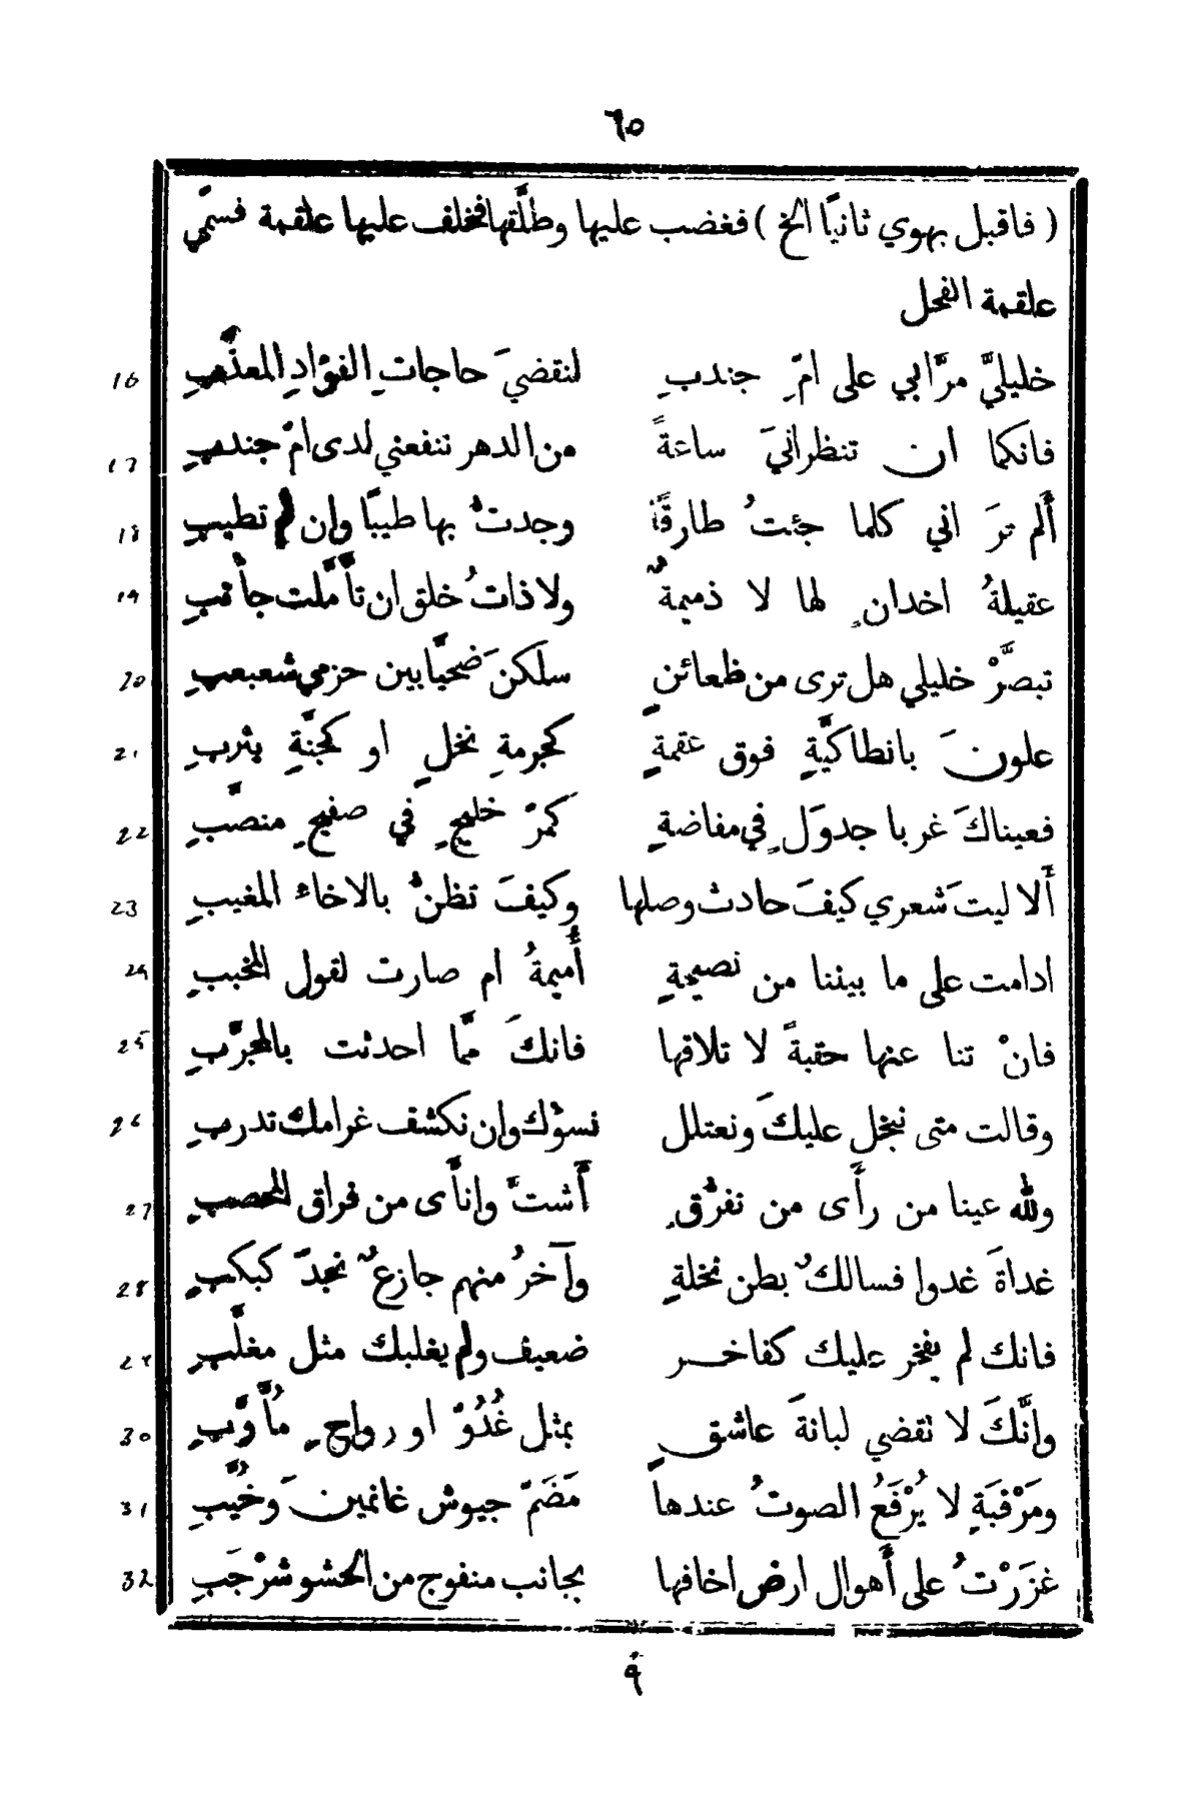 ٦٥
( فاقبل يهوي ثانيًا الخ ) فغضب عليها وطلَّقها فخلف عليها علقمة فسمّي
علقمة الفحل
خليليَّ مرَّا بي على امّ جندبِ لنقضيَ حاجاتِ الفؤادِ المعذَّبِ 16
فانكما ان تنظرانيَ ساعةً من الدهر تنفعني لدى امّ جندبِ 17
ألم ترَ اني كلما جئتُ طارقًا وجدتُ بها طيبًا وإن لم تطيبِ 18
عقيلةُ اخدانٍ لها لا ذميمةٌ ولا ذاتُ خلق ان تأمَّلت جأنبِ 19
تبصَّرْ خليلي هل ترى من ظعائنٍ سلكنَ ضحيًّا بين حزمي شعبعبِ 20
علونَ بانطاكيَّةٍ فوق عقمةٍ كجرمةِ نخلٍ او كجنَّةِ يثربِ 21
فعيناكَ غربا جدوَلٍ في مفاضةٍ كمرّ خليجٍ في صفيحٍ منصَّبِ 22
ألا ليتَ شعري كيفَ حادث وصلها وكيفَ تظنُّ بالاخاء المغيبِ 23
ادامت على ما بيننا من نصيحةٍ أُميمةُ ام صارت لقول المخببِ 24
فانْ تنا عنها حقبةً لا تلاقها فانكَ ممَّا احدثت بالمجرَّبِ 25
وقالت متى نبخل عليكَ ونعتلل نسؤك وان نكشف غرامك تدربِ 26
ولله عينا من رأَى من تفرُّقٍ أَشتَّ وانأَى من فراق المحصبِ 27
غداةَ غدوا فسالكٌ بطن نخلةٍ وآخرُ منهم جازعٌ نجدَ كبكبِ 28
فانك لم يفخر عليك كفاخر ضعيف ولم يغلبك مثل مغلَّبِ 29
وانَّكَ لا تقضي لبانةَ عاشقٍ بمثل غُدُوّ او رواحٍ مُأَوَّبِ 30
ومَرْقبَةٍ لا يُرْفَعُ الصوتُ عندها مَضَمّ جيوش غانمينَ وخُيَّبِ 31
غزَرْتُ على أَهوال ارض اخافها بجانب منفوج من الحشو شرْجَبِ 32
٩